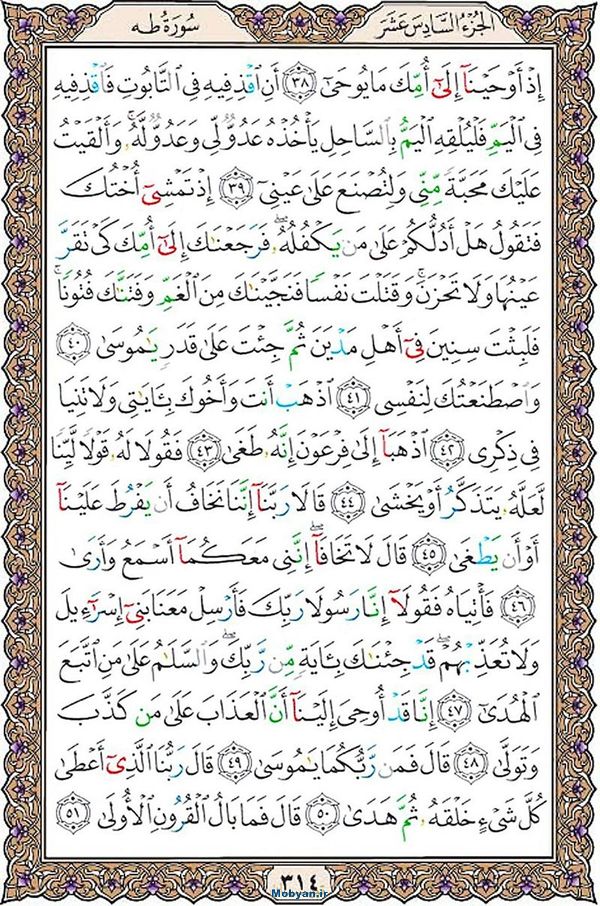 الجُزءُ السَّادِسَ عَشَرَ
سُورَةُ طه
إِذۡ أَوۡحَيۡنَآ إِلَىٰٓ أُمِّكَ مَا يُوحَىٰٓ ﴿٣٨﴾ أَنِ ٱقۡذِفِيهِ فِي ٱلتَّابُوتِ فَٱقۡذِفِيهِ
فِي ٱلۡيَمِّ فَلۡيُلۡقِهِ ٱلۡيَمُّ بِٱلسَّاحِلِ يَأۡخُذۡهُ عَدُوّٞ لِّي وَعَدُوّٞ لَّهُۥۚ وَأَلۡقَيۡتُ
عَلَيۡكَ مَحَبَّةٗ مِّنِّي وَلِتُصۡنَعَ عَلَىٰ عَيۡنِيٓ ﴿٣٩﴾ إِذۡ تَمۡشِيٓ أُخۡتُكَ
فَتَقُولُ هَلۡ أَدُلُّكُمۡ عَلَىٰ مَن يَكۡفُلُهُۥۖ فَرَجَعۡنَٰكَ إِلَىٰٓ أُمِّكَ كَيۡ تَقَرَّ
عَيۡنُهَا وَلَا تَحۡزَنَۚ وَقَتَلۡتَ نَفۡسٗا فَنَجَّيۡنَٰكَ مِنَ ٱلۡغَمِّ وَفَتَنَّٰكَ فُتُونٗاۚ
فَلَبِثۡتَ سِنِينَ فِيٓ أَهۡلِ مَدۡيَنَ ثُمَّ جِئۡتَ عَلَىٰ قَدَرٖ يَٰمُوسَىٰ ﴿٤٠﴾
وَٱصۡطَنَعۡتُكَ لِنَفۡسِي ﴿٤١﴾ ٱذۡهَبۡ أَنتَ وَأَخُوكَ بِـَٔايَٰتِي وَلَا تَنِيَا
فِي ذِكۡرِي ﴿٤٢﴾ ٱذۡهَبَآ إِلَىٰ فِرۡعَوۡنَ إِنَّهُۥ طَغَىٰ ﴿٤٣﴾ فَقُولَا لَهُۥ قَوۡلٗا لَّيِّنٗا
لَّعَلَّهُۥ يَتَذَكَّرُ أَوۡ يَخۡشَىٰ ﴿٤٤﴾ قَالَا رَبَّنَآ إِنَّنَا نَخَافُ أَن يَفۡرُطَ عَلَيۡنَآ
أَوۡ أَن يَطۡغَىٰ ﴿٤٥﴾ قَالَ لَا تَخَافَآۖ إِنَّنِي مَعَكُمَآ أَسۡمَعُ وَأَرَىٰ
﴿٤٦﴾ فَأۡتِيَاهُ فَقُولَآ إِنَّا رَسُولَا رَبِّكَ فَأَرۡسِلۡ مَعَنَا بَنِيٓ إِسۡرَٰٓءِيلَ
وَلَا تُعَذِّبۡهُمۡۖ قَدۡ جِئۡنَٰكَ بِـَٔايَةٖ مِّن رَّبِّكَۖ وَٱلسَّلَٰمُ عَلَىٰ مَنِ ٱتَّبَعَ
ٱلۡهُدَىٰٓ ﴿٤٧﴾ إِنَّا قَدۡ أُوحِيَ إِلَيۡنَآ أَنَّ ٱلۡعَذَابَ عَلَىٰ مَن كَذَّبَ
وَتَوَلَّىٰ ﴿٤٨﴾ قَالَ فَمَن رَّبُّكُمَا يَٰمُوسَىٰ ﴿٤٩﴾ قَالَ رَبُّنَا ٱلَّذِيٓ أَعۡطَىٰ
كُلَّ شَيۡءٍ خَلۡقَهُۥ ثُمَّ هَدَىٰ ﴿٥٠﴾ قَالَ فَمَا بَالُ ٱلۡقُرُونِ ٱلۡأُولَىٰ ﴿٥١﴾
٣١٤
Mobyan.ir